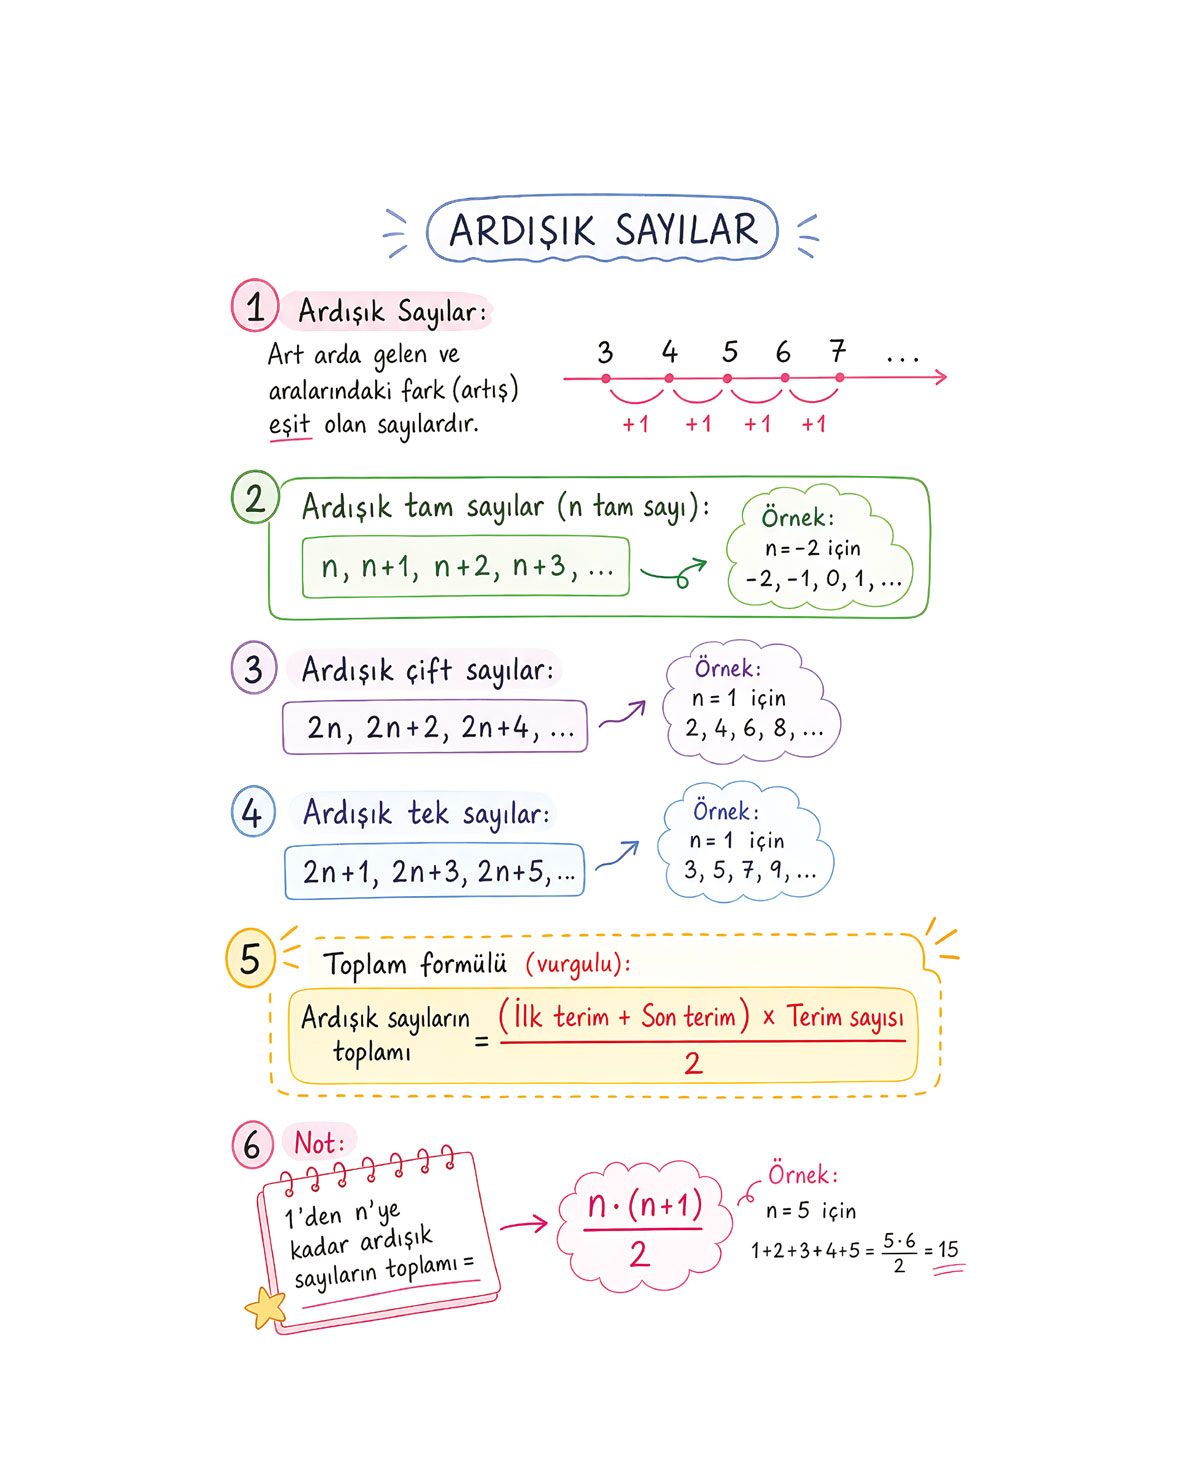 ARDIŞIK SAYILAR
1 Ardışık Sayılar:
Art arda gelen ve
aralarındaki fark (artış)
eşit olan sayılardır.
3 4 5 6 7 ...
+1 +1 +1 +1
2 Ardışık tam sayılar (n tam sayı):
n, n+1, n+2, n+3, ...
Örnek:
n=-2 için
-2, -1, 0, 1, ...
3 Ardışık çift sayılar:
2n, 2n+2, 2n+4, ...
Örnek:
n=1 için
2, 4, 6, 8, ...
4 Ardışık tek sayılar:
2n+1, 2n+3, 2n+5, ...
Örnek:
n=1 için
3, 5, 7, 9, ...
5 Toplam formülü (vurgulu):
Ardışık sayıların
toplamı
=
(İlk terim + Son terim) x Terim sayısı
2
6 Not:
1'den n'ye
kadar ardışık
sayıların toplamı =
n·(n+1)
2
Örnek:
n=5 için
1+2+3+4+5 = 5·6/2 = 15